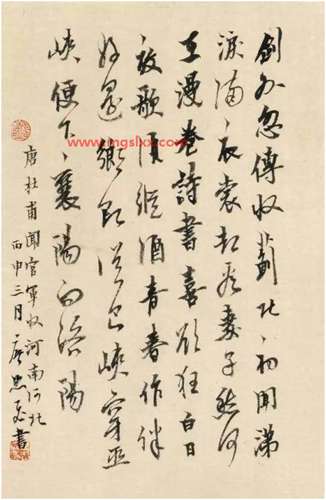 劍外忽傳收薊北初聞涕
淚滿衣裳却看妻子愁何
在漫卷詩書喜欲狂白日
放歌須縱酒青春作伴
好還鄉即從巴峽穿巫
峽便下襄陽向洛陽
唐杜甫聞官軍收河南河北
丙申三月唐忠書
www.mgslxx.com